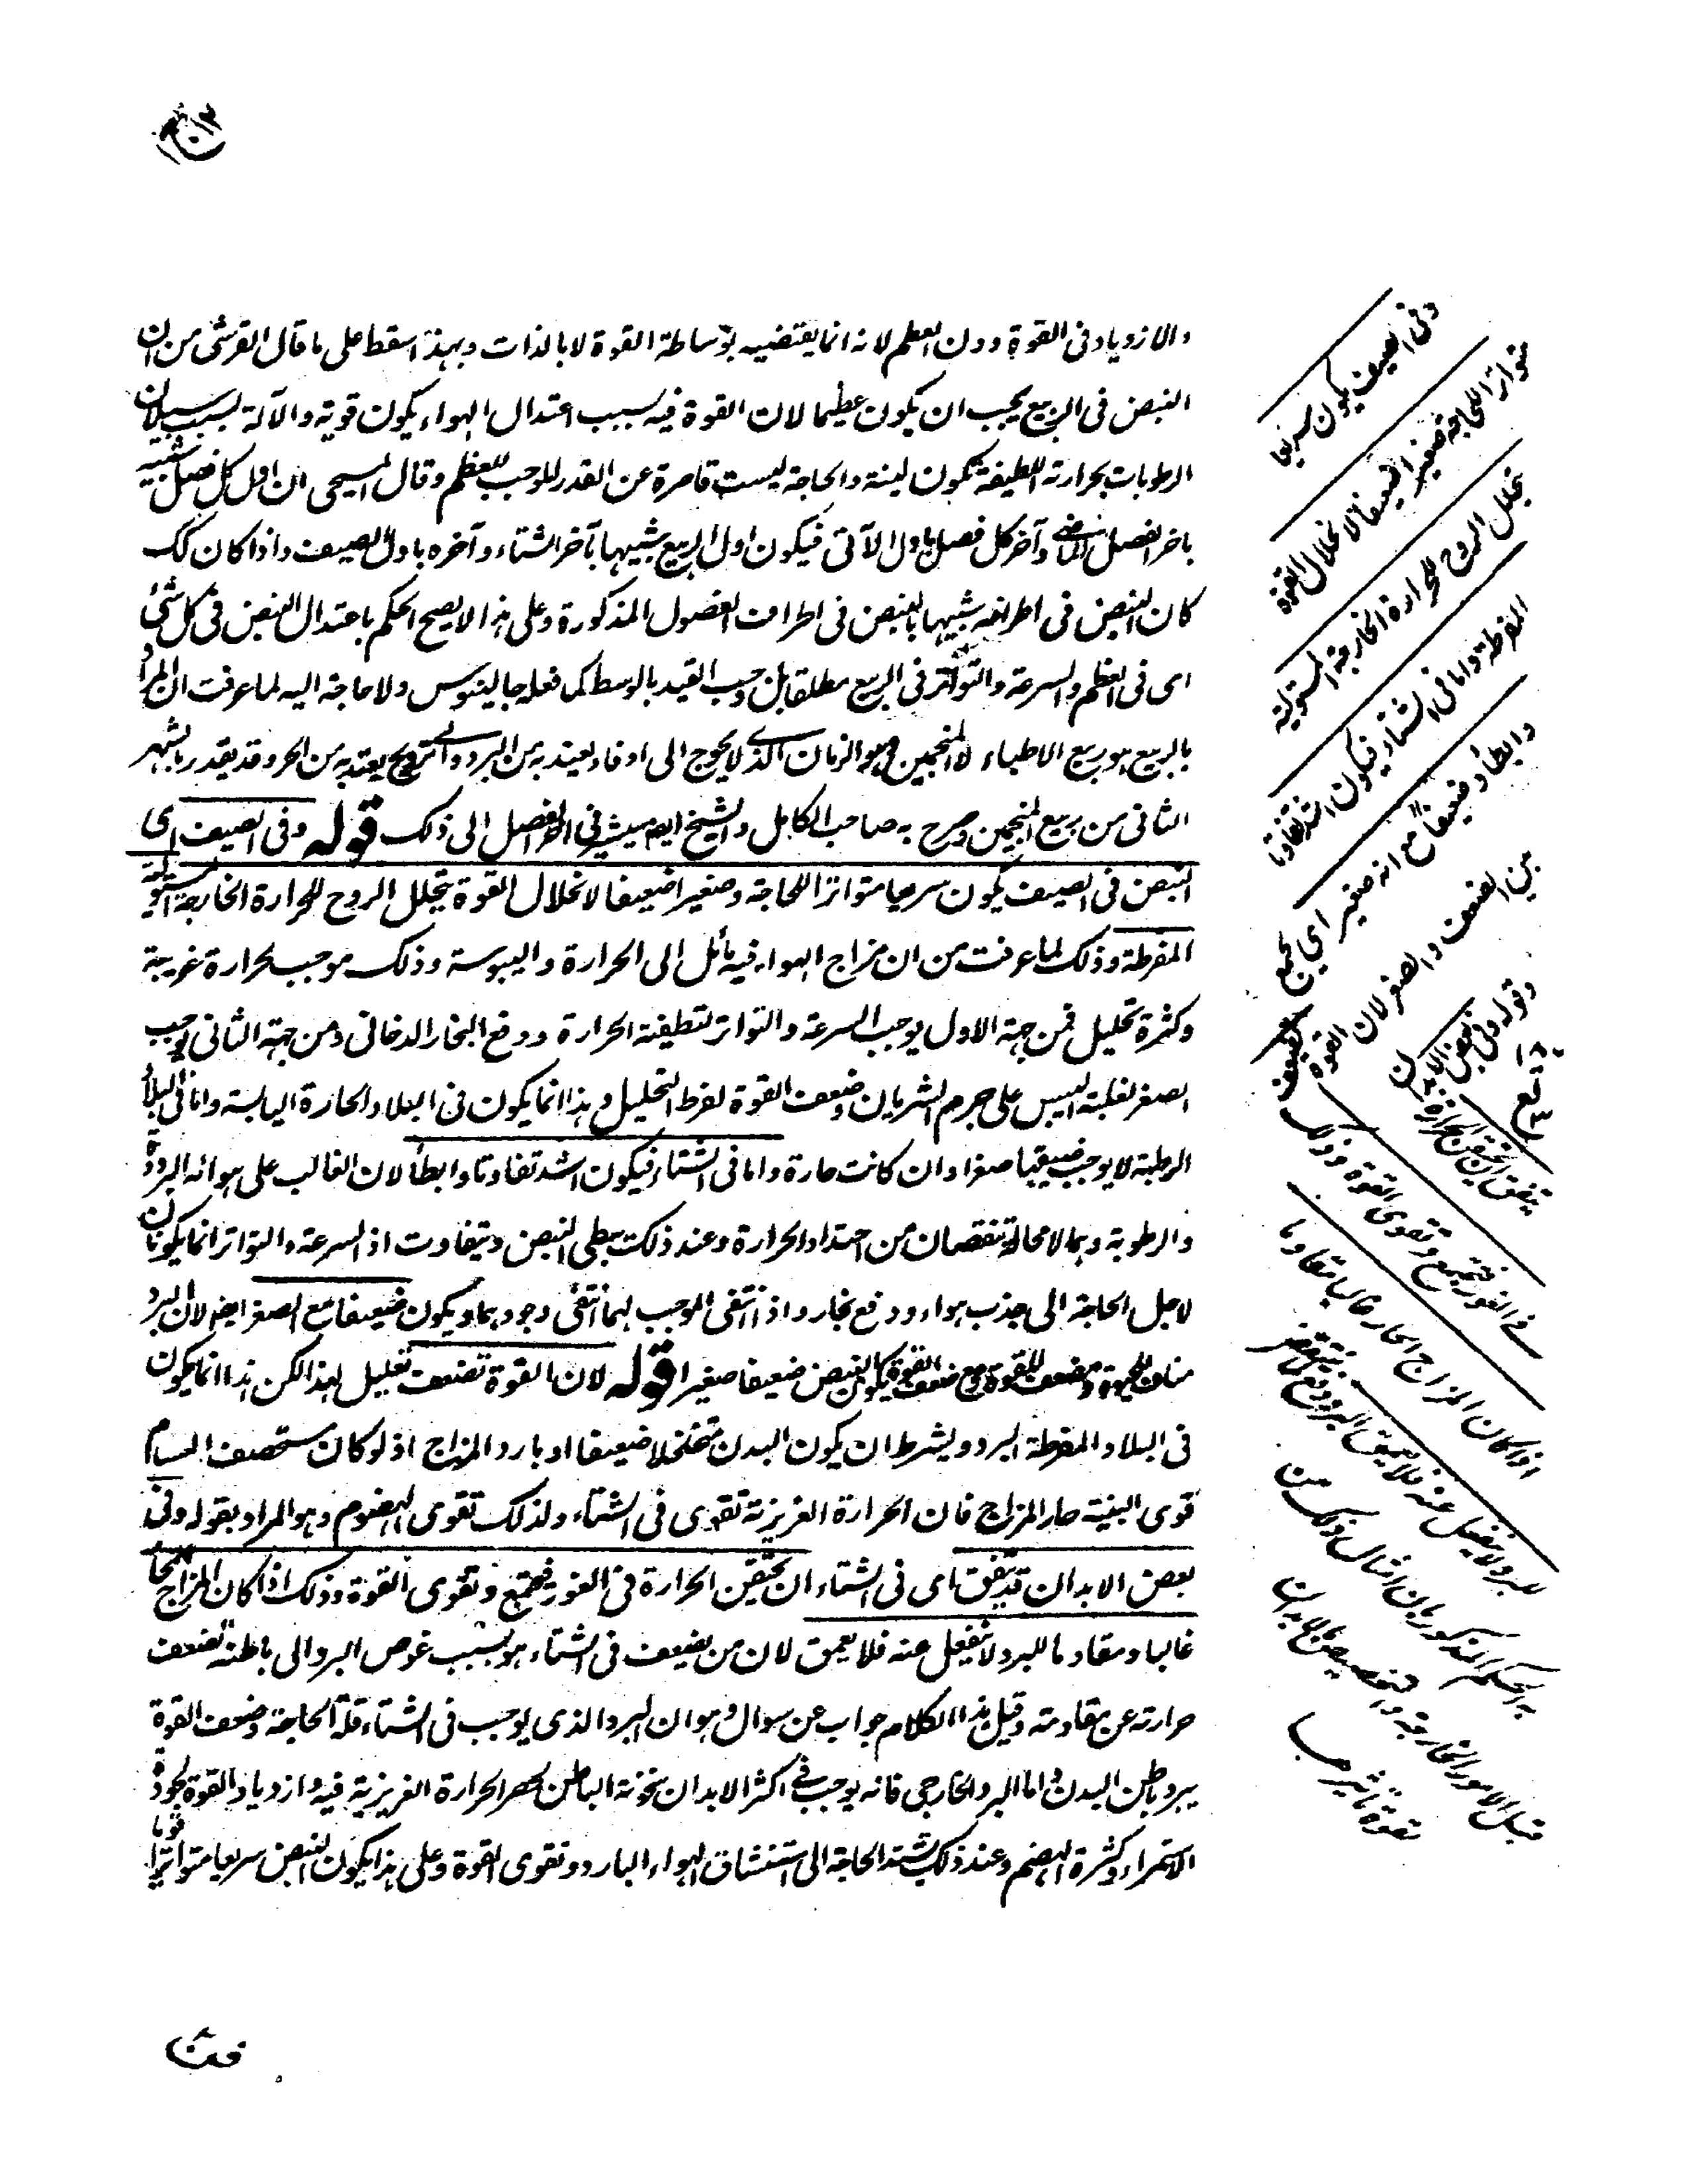 والازدياد فى القوة دون العظم لانه انما يقتضيه بوساطة القوة لا بالذات وبهذا سقط على ما قال القرشى من ان
النبض فى الربيع يجب ان يكون عظيما لان القوة فيه بسبب اعتدال الهواء يكون قوية والآلة بسبب سيلان
الرطوبات بحرارته اللطيفة تكون لينة والحاجة ليست قاصرة عن القدر الموجب للعظم وقال المسيحى ان اول كل فصل شبيه
باخر الفصل الماضى وآخر كل فصل باول الآتى فيكون اول الربيع شبيها بآخر الشتاء وآخره باول الصيف واذا كان كك
كان النبض فى اطرافه شبيها بالنبض فى اطراف الفصول المذكورة وعلى هذا لا يصح الحكم باعتدال النبض فى كل شئ
اى فى العظم والسرعة والتواتر فى الربيع مطلقا بل وجب القيد بالوسط كما فعله جالينوس ولا حاجة اليه لما عرفت ان المراد
بالربيع هو ربيع الاطباء لا المنجمين وهو الزمان الذى لا يحوج الى ادفاء يعتد به من البرد والى ترويح يعتد به من الحر وقد يقدر بالشهر
الثانى من ربيع المنجمين وصرح به صاحب الكامل والشيخ ايض يشير فى الفصل الى ذلك قوله وفى الصيف اى
النبض فى الصيف يكون سريعا متواترا للحاجة وصغيرا ضعيفا لانحلال القوة بتحلل الروح للحرارة الخارجة المستولية
المفرطة وذلك لما عرفت من ان مزاج الهواء فيه مائل الى الحرارة واليبوسة وذلك موجب لحرارة غريبة
وكثرة تحليل فمن جهة الاول يوجب السرعة والتواتر لتطفية الحرارة ودفع البخار الدخانى ومن جهة الثانى يوجب
الصغر لغلبة اليبس على جرم الشريان وضعف القوة لفرط التحليل وهذا انما يكون فى البلاد الحارة اليابسة واما فى البلاد
الرطبة لا يوجب ضيقا صغرا وان كانت حارة واما فى الشتاء فيكون اشد تفاوتا وابطأ لان الغالب على هوائه البرودة
والرطوبة وهما لا محالة تنقصان من اجتداد الحرارة وعند ذلك يبطى النبض ويتفاوت اذ السرعة والتواتر انما يكونان
لاجل الحاجة الى جذب هواء ودفع بخار واذ انتفى الموجب لهما انتفى وجودهما ويكون ضعيفا مع الصغر ايض لان البرد
مناف للحيوة ومضعف للقوة ومع ضعف القوة يكون النبض ضعيفا صغيرا قوله لان القوة تضعف تعليل لهذا لكن هذا انما يكون
فى البلاد المفرطة البرد وبشرط ان يكون البدن متخلخلا ضعيفا او بارد المزاج اذ لو كان مستحصف المسام
قوى البنية حار المزاج فان الحرارة الغريزية تقوى فى الشتاء ولذلك تقوى الهضوم وهو المراد بقوله وفى
بعض الابدان قد يتفق اى فى الشتاء ان تحتقن الحرارة فى الغور فتجتمع وتقوى القوة وذلك اذا كان المزاج الحار
غالبا ومقاوما للبرد لا ينفعل عنه فلا يعمق لان من يضعف فى الشتاء هو بسبب غوص البرد الى باطنه لضعف
حرارته عن مقاومته وقيل هذا الكلام جواب عن سوال وهو ان البرد الذى يوجب فى الشتاء قلة الحاجة وضعف القوة
يبرد باطن البدن واما البرد الخارجى فانه يوجب فى اكثر الابدان سخونة الباطن لحصر الحرارة الغريزية فيه وازدياد القوة لجودة
الاستمراء وكثرة الهضم وعند ذلك يشتد الحاجة الى استنشاق الهواء البارد وتقوى القوة وعلى هذا يكون النبض سريعا متواترا قويا
وفى الصيف يكون سريعا
متواترا للحاجة صغيرا ضعيفا لانحلال القوة
بتحلل الروح للحرارة الخارجة المستولية
المفرطة واما فى الشتاء فيكون اشد تفاوتا
وابطأ وضعيفا مع انه صغير اى يجمع
بين الضعف والصغر لان القوة تضعف
وقوله وفى بعض الابدان
يتفق ان تحتقن الحرارة
فى الغور فتجتمع وتقوى القوة وذلك
اذا كان المزاج الحار غالبا مقاوما
للبرد لا ينفعل عنه فلا يعمق البرد